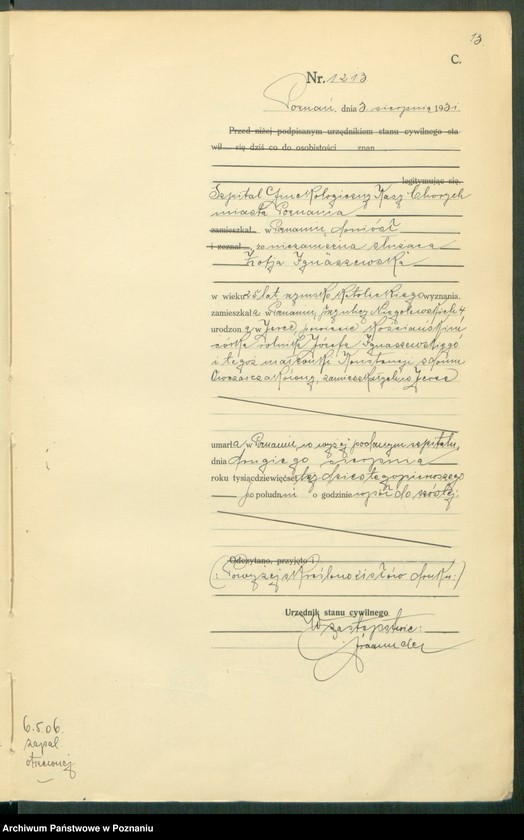 13
C.
Nr. 1213
Poznań, dnia 3 sierpnia 1931.
Przed niżej podpisanym urzędnikiem stanu cywilnego sta
wił się dziś co do osobistości znan
legitymując się.
Szpital Ginekologiczny Kasy Chorych
miasta Poznania
zamieszkał w Poznaniu, doniósł
i zeznał, że niezamężna służąca
Zofja Ignaszewska
w wieku 25 lat, rzymsko katolickiego wyznania.
zamieszkała w Poznaniu, przy ulicy Niegolewskich 4
urodzona w Jerce, powiecie Kościańskim
córka rolnika Józefa Ignaszewskiego
i tegoż małżonki Konstancji z domu
zamieszkałych w Jerce
umarła w Poznaniu, w wyżej podanym szpitalu,
dnia drugiego sierpnia
roku tysiącdziewięćset trzydziestego pierwszego
po południu o godzinie wpół do szóstej.
Odczytano, przyjęto i
(Powyżej skreślono słów druku.)
Urzędnik stanu cywilnego
W zastępstwie:
6.5.06.
zapal
otrzewnej
Archiwum Państwowe w Poznaniu